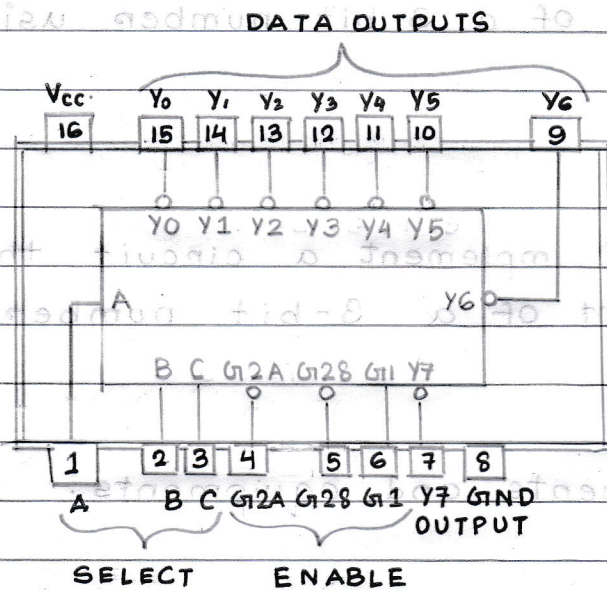 DATA OUTPUTS
Vcc Y0 Y1 Y2 Y3 Y4 Y5 Y6
16 15 14 13 12 11 10 9
Y0 Y1 Y2 Y3 Y4 Y5
A Y6
B C G2A G28 G1 Y7
1 2 3 4 5 6 7 8
A B C G2A G28 G1 Y7 GND
OUTPUT
SELECT ENABLE